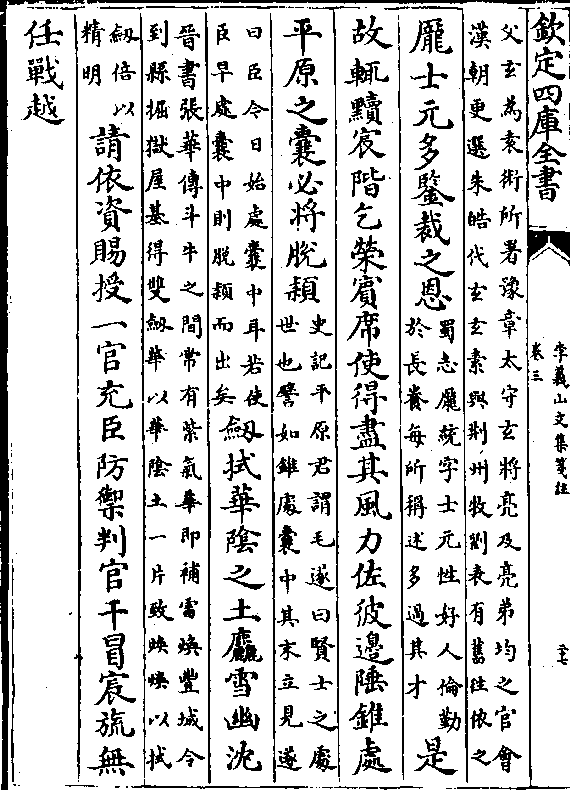 欽定四庫全書
李義山文集箋註
卷三
父玄為袁術所署豫章太守玄將亮及亮弟均之官會
漢朝更選朱皓代玄玄素與荆州牧劉表有舊往依之
龐士元多鑒裁之恩
蜀志龐統字士元性好人倫勤
於長養每所稱述多過其才
是
故輒黷宸階乞榮賓席使得盡其風力佐彼邊陲錐處
平原之囊必將脫穎
史記平原君謂毛遂曰賢士之處
世也譬如錐處囊中其末立見遂
曰臣今日始處囊中耳若使
臣早處囊中則脫穎而出矣
劒拭華陰之土麤雪幽沈
晉書張華傳斗牛之間常有紫氣華即補雷煥豐城令
到縣掘獄屋基得雙劒華以華陰土一片致煥煥以拭
劒倍以
精明
請依資賜授一官充臣防禦判官干冒宸旒無
任戰越